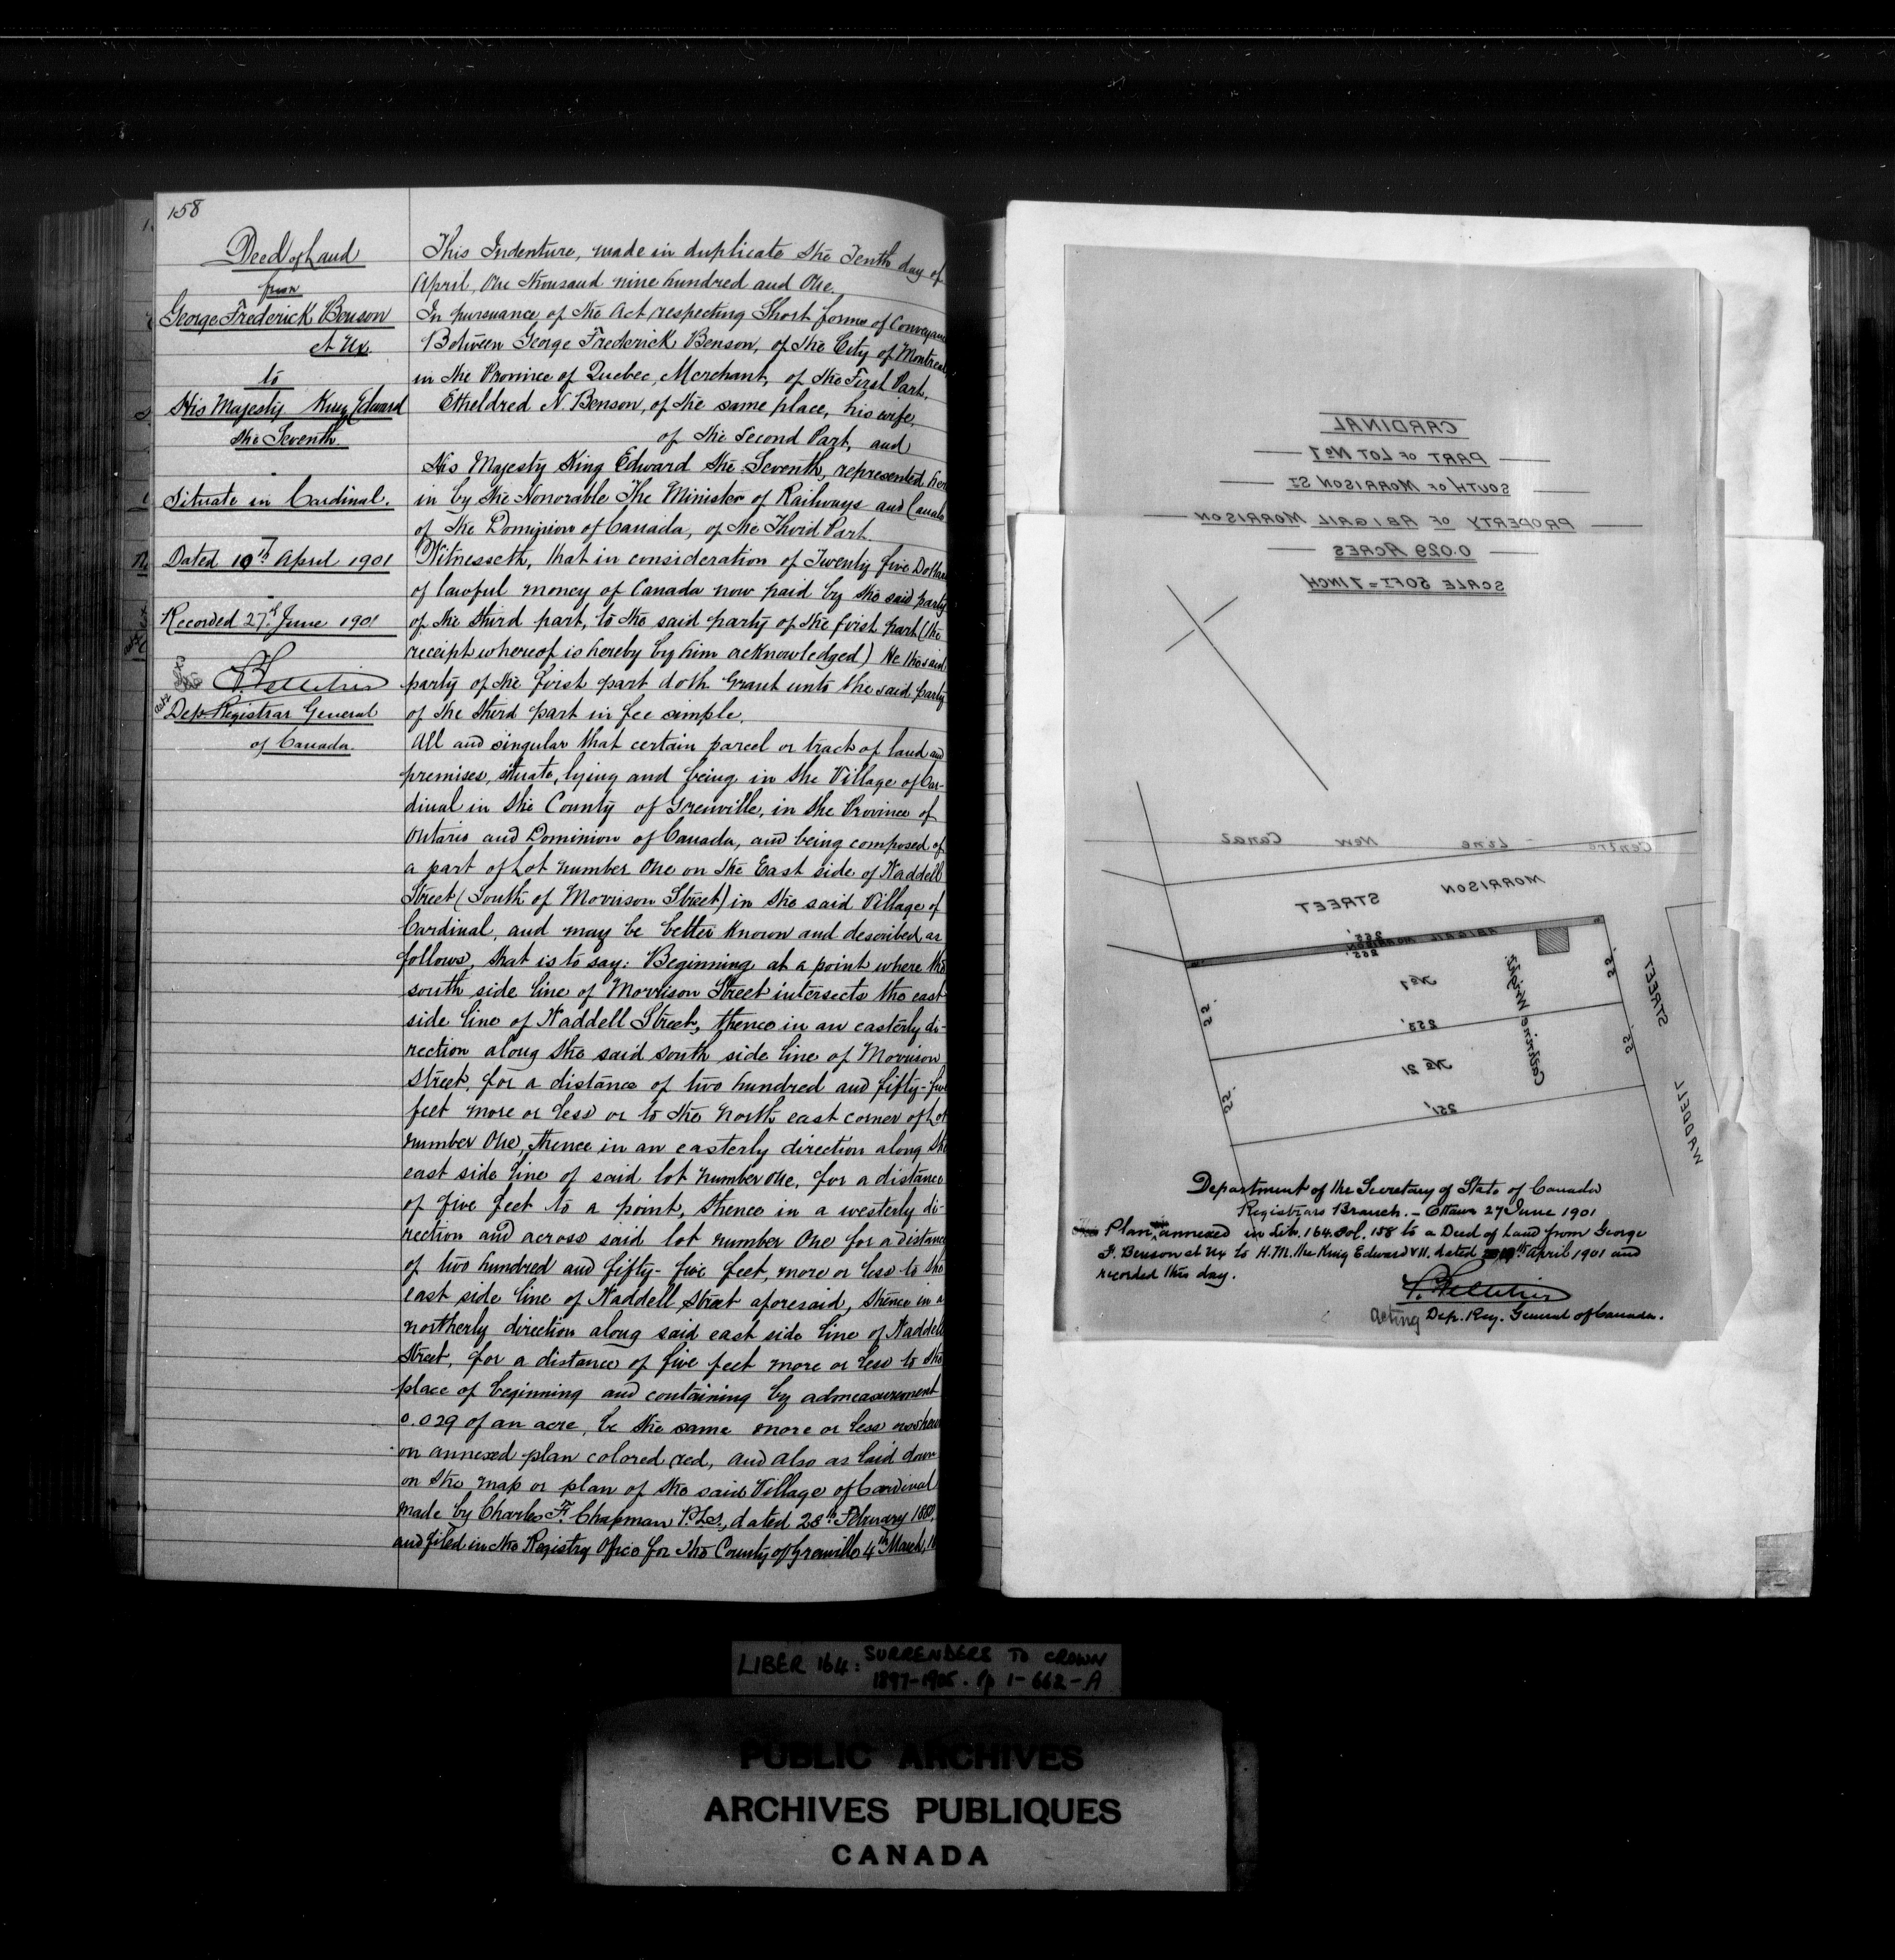 158
Deed of Land
from
George Frederick Benson
et Ux.
to
His Majesty King Edward
the Seventh.
Situate in Cardinal.
Dated 10th April 1901
Recorded 27th June 1901
P. Pelletier
Actg Dep Registrar General
of Canada.
This Indenture, made in duplicate the Tenth day of
April, One thousand nine hundred and One.
In pursuance of the Act respecting Short forms of Conveyan
Between George Frederick Benson, of the City of Montreal
in the Province of Quebec, Merchant, of the First Part,
Etheldred N. Benson, of the same place, his wife,
of the Second Part, and
His Majesty King Edward the Seventh, represented here
in by the Honorable The Minister of Railways and Canals
of the Dominion of Canada, of the Third Part.
Witnesseth, that in consideration of Twenty five Dollars
of lawful money of Canada now paid by the said party
of the third part, to the said party of the first part (the
receipt whereof is hereby by him acknowledged) He the said
party of the first part doth Grant unto the said party
of the third part in fee simple.
All and singular that certain parcel or tract of land and
premises, situate, lying and being in the Village of Car-
dinal in the County of Grenville, in the Province of
Ontario and Dominion of Canada, and being composed of
a part of Lot number One on the East side of Waddell
Street (South of Morrison Street) in the said Village of
Cardinal, and may be better known and described as
follows, that is to say: Beginning at a point where the
south side line of Morrison Street intersects the east
side line of Waddell Street, thence in an easterly di-
rection along the said south side line of Morrison
Street, for a distance of two hundred and fifty-five
feet more or less or to the North east corner of Lot
number One, thence in an easterly direction along the
east side line of said lot number one, for a distance
of five feet to a point, thence in a westerly di-
rection and across said lot number One for a distance
of two hundred and fifty-five feet, more or less to the
east side line of Waddell Street aforesaid, thence in a
northerly direction along said east side line of Waddell
Street, for a distance of five feet more or less to the
place of beginning and containing by admeasurement
0.029 of an acre, be the same more or less as shewn
on annexed plan colored red, and also as laid down
on the map or plan of the said Village of Cardinal
made by Charles F. Chapman P.L.S., dated 28th February 1880,
and filed in the Registry Office for the County of Grenville 4th March, 18
CARDINAL
PART OF LOT No 1
SOUTH OF MORRISON ST
PROPERTY OF ABIGAIL MORRISON
0.029 ACRES
SCALE 50FT = 1 INCH
Centre Line New Canal
MORRISON STREET
255'
ABIGAIL MORRISON
255'
No 1
Catherine Wright
55'
253'
55'
No 21
55'
55'
251'
WADDELL STREET
Department of the Secretary of State of Canada
Registrars Branch. - Ottawa 27 June 1901
Plan annexed in Lib. 164. Fol. 158 to a Deed of Land from George
F. Benson et Ux to H.M. the King Edward VII. dated 10th April 1901 and
recorded this day.
P. Pelletier
Acting Dep. Reg. General of Canada.
LIBER 164: SURRENDERS TO CROWN
1897-1905. Pp 1-662-A
PUBLIC ARCHIVES
ARCHIVES PUBLIQUES
CANADA